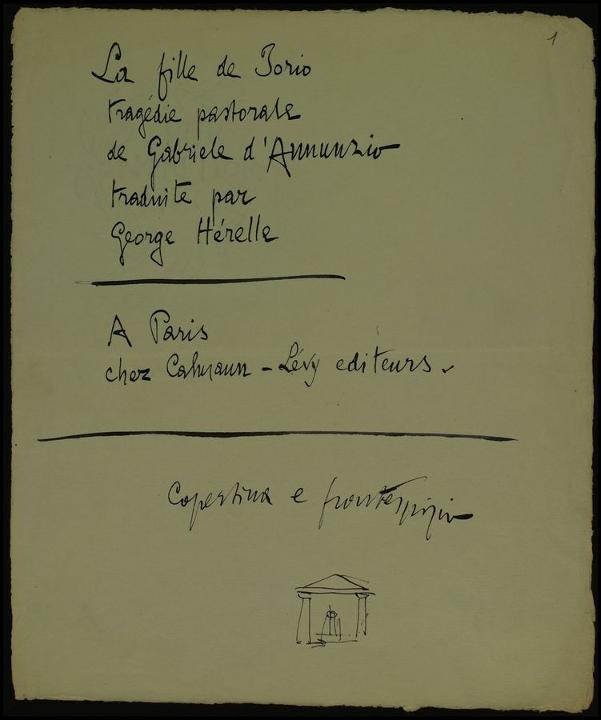 1
La fille de Jorio
tragédie pastorale
de Gabriele d'Annunzio
traduite par
George Hérelle
A Paris
chez Calmann-Lévy editeurs.
Copertina e frontespizio